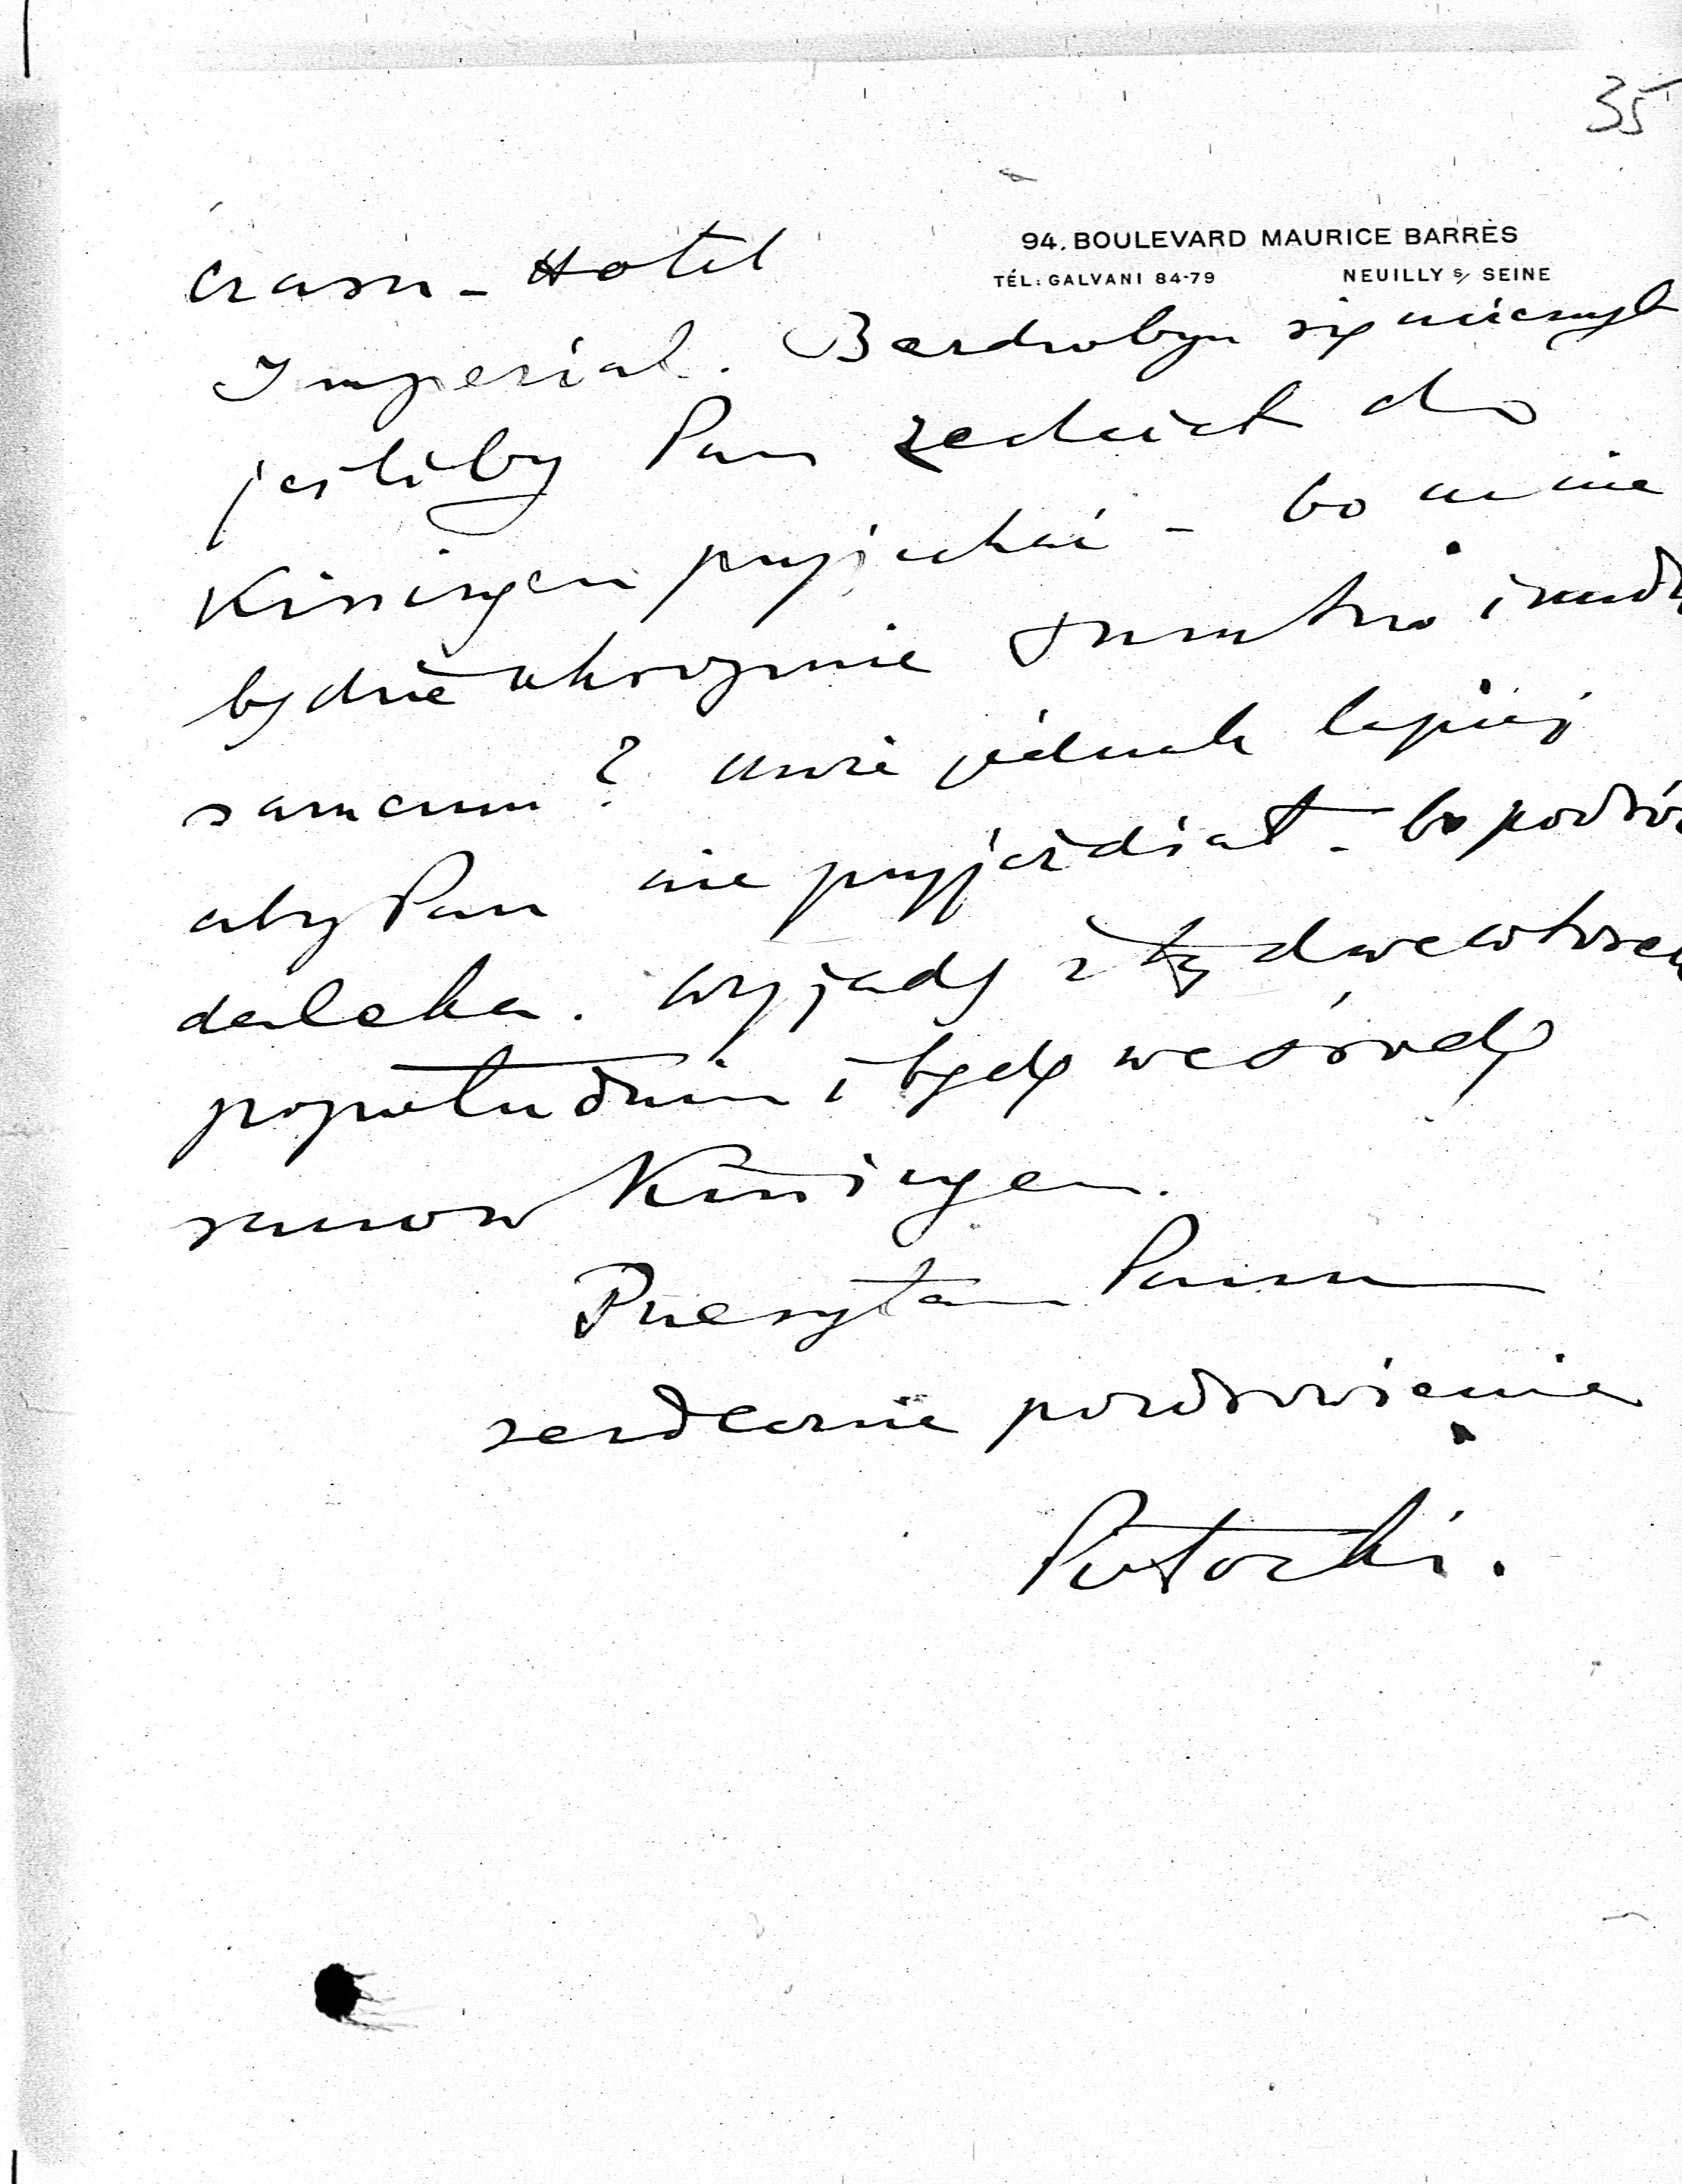 35
94. BOULEVARD MAURICE BARRÈS
TÉL: GALVANI 84-79 NEUILLY s/ SEINE
czasu - Hotel
Imperial. Bardzobym się ucieszył
jeśliby Pan zechciał do
Kissingen przyjechać - bo mnie
będzie okropnie smutno i nudn
samemu? może jednak lepiej
aby Pan nie przyjeżdżał - bo podróż
daleka. Wyjadę we wtorek
popołudniu i będę we środę
rano w Kissingen.
Przesyłam Panu
serdeczne pozdrowienia
Potocki.